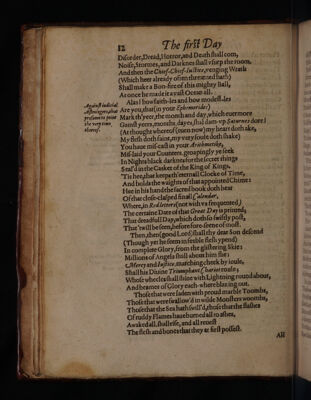 12 The first Day
Disorder, Dread, Horror, and Death shall com,
Noise, Stormes, and Darknes shall vsurp the room.
And then the Chief-Chief-Iustice, venging Wrath
(Which heer already often threatned hath)
Shall make a Bon-fire of this mighty Ball,
As once he made it a vast Ocean all.
Against iudicial
Astrologers, that
presume to point
the very time
thereof
Alas! how faith-les and how modest-les
Are you, that (in your Ephemerides)
Mark th'yeer, the month and day, which euermore
Gainst yeers, months, dayes, shal dam-vp Saturnes dore!
(At thought whereof (euen now) my heart doth ake,
My flesh doth faint, my very soule doth shake)
You haue mis-cast in your Arithmetike,
Mis-laid your Counters, gropingly ye seek
In Nights black darknes for the secret things
Seal'd in the Casket of the King of Kings.
Tis hee, that keeps th'eternall Clocke of Time,
And holds the waights of that appointed Chime:
Hee in his hand the sacred book doth bear
Of that close-clasped finall Calender,
Where, in Red letters (not with vs frequented)
The certaine Date of that Great Day is printed;
That dreadfull Day, which doth so swiftly poste,
That 'twill be seen, before fore-seene of most.
Then, then (good Lord) shall thy dear Son descend
(Though yet he seem in feeble flesh ypend)
In complete Glory, from the glistering Skie:
Millions of Angels shall about him flie:
Mercy and Iustice, marching cheek by ioule,
Shall his Diuine Triumphant Chariot roule;
Whose wheeles shall shine with Lightning round about,
And beames of Glory each-where blazing out.
Those that were laden with proud marble Toombs,
Those that were swallow'd in wilde Monsters woombs,
Those that the Sea hath swill'd, those that the flashes
Of ruddy Flames haue burned all to ashes,
Awaked all, shall rise, and all reuest
The flesh and bones that they at first possest.
All